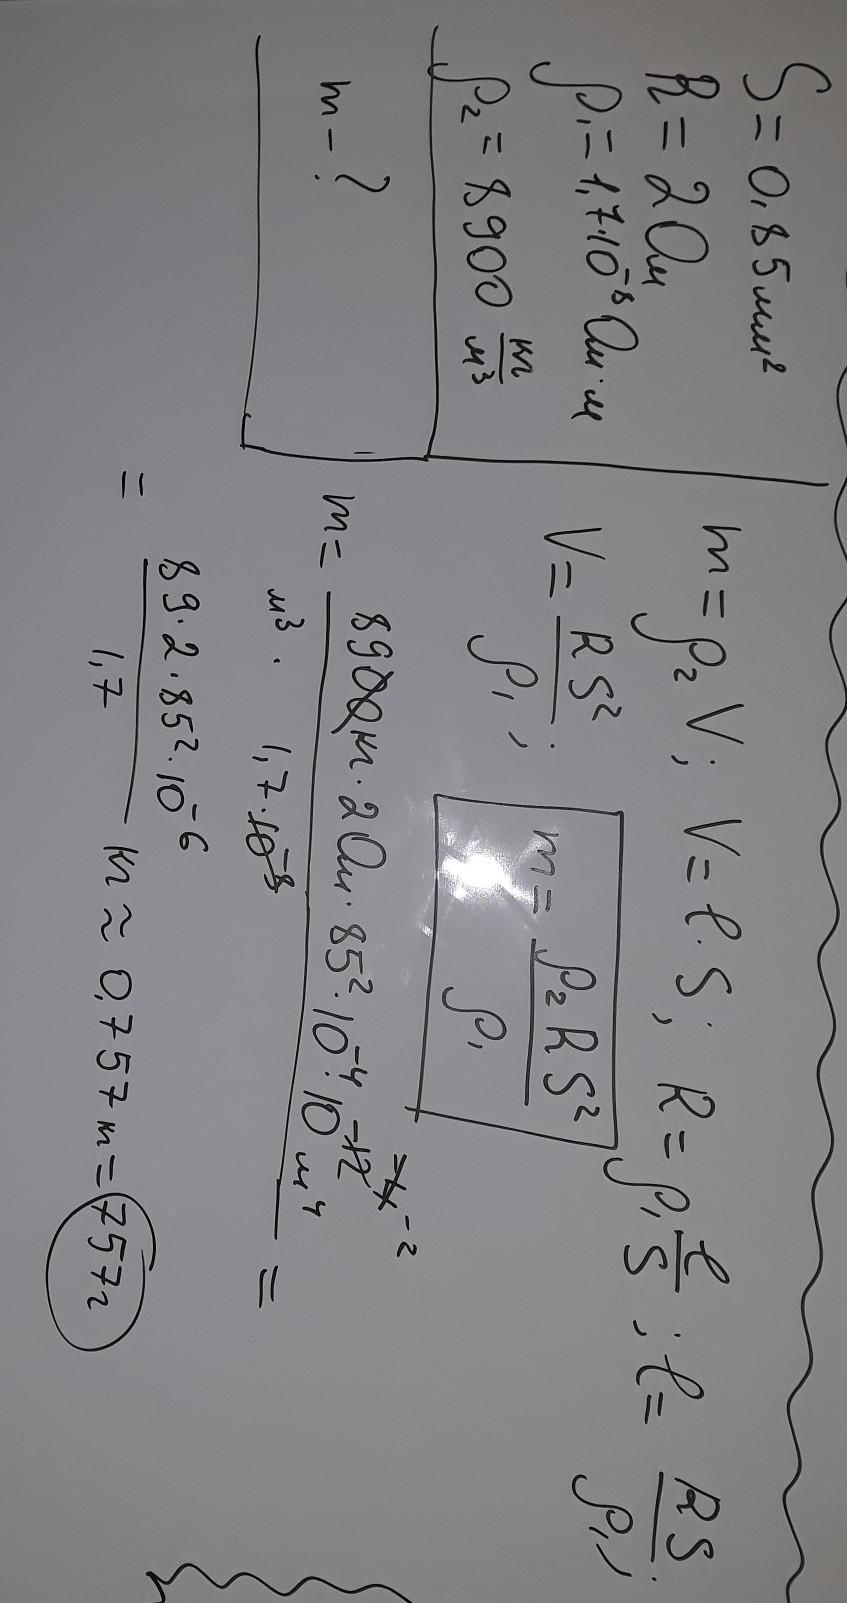 S = 0,85 мм²
R = 2 Ом
ρ₁ = 1,7·10⁻⁸ Ом·м
ρ₂ = 8900 кг/м³
m - ?
m = ρ₂V; V = ℓ·S; R = ρ₁ ℓ/S; ℓ = RS/ρ₁;
V = RS²/ρ₁; m = ρ₂RS²/ρ₁
m = 8900 кг·2 Ом·85²·10⁻⁴·10⁻¹² м⁴ / м³·1,7·10⁻⁸ =
= 89·2·85²·10⁻⁶/1,7 кг ≈ 0,757 кг = 757 г